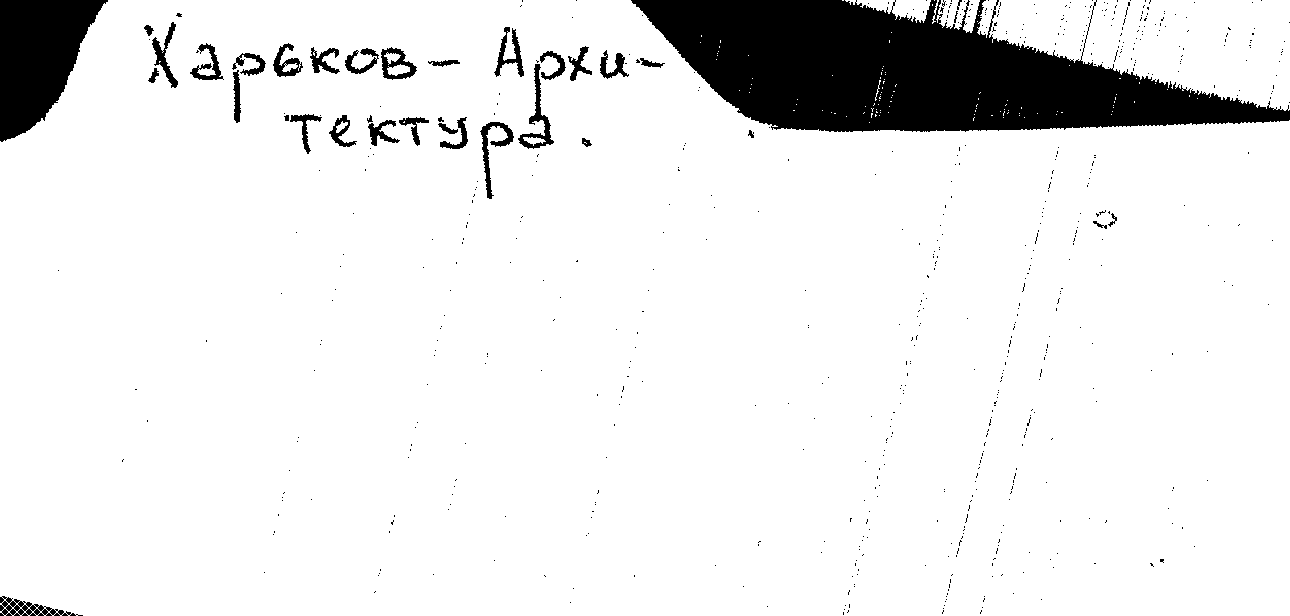 Харьков - Архи-
тектура.